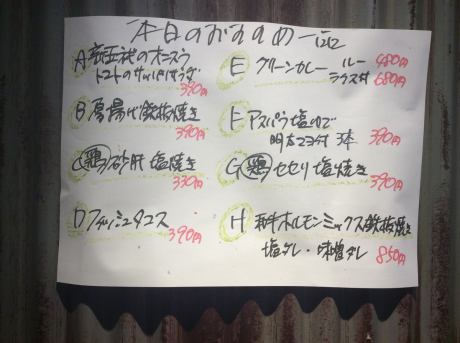 本日のおすすめ一品
A のオニスラ
トマトのサッパリサラダ
390円
B 厚揚げ鉄板焼き
390円
C 鶏 砂肝 塩焼き
330円
D フィッシュタコス
390円
E グリーンカレー ルー 480円
ライス付 680円
F アスパラ塩ゆで
明太マヨ付 3本 390円
G 鶏 セセリ 塩焼き
390円
H 和牛ホルモンミックス鉄板焼き
塩ダレ・味噌ダレ 850円